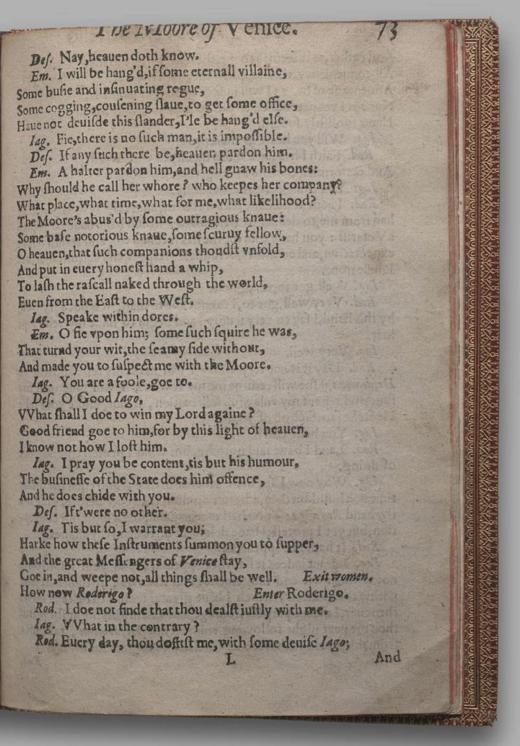 The Moore of Venice. 73
Deſ. Nay,heauen doth know.
Em. I will be hang'd,if ſome eternall villaine,
Some buſie and inſinuating rogue,
Some cogging,couſening ſlaue,to get ſome office,
Haue not deuiſde this ſlander,I'le be hang'd elſe.
Iag. Fie,there is no ſuch man,it is impoſſible.
Deſ. If any ſuch there be,heauen pardon him.
Em. A halter pardon him,and hell gnaw his bones:
Why ſhould he call her whore? who keepes her company?
What place,what time,what for me,what likelihood?
The Moore's abus'd by ſome outragious knaue:
Some baſe notorious knaue,ſome ſcuruy fellow,
O heauen,that ſuch companions thoudſt vnfold,
And put in euery honeſt hand a whip,
To laſh the raſcall naked through the world,
Euen from the Eaſt to the Weſt.
Iag. Speake within dores.
Em. O fie vpon him; ſome ſuch ſquire he was,
That turnd your wit,the ſeamy ſide without,
And made you to ſuſpect me with the Moore.
Iag. You are a foole,goe to.
Deſ. O Good Iago,
VVhat ſhall I doe to win my Lord againe?
Good friend goe to him,for by this light of heauen,
I know not how I loſt him.
Iag. I pray you be content,tis but his humour,
The buſineſſe of the State does him offence,
And he does chide with you.
Deſ. Ift'were no other.
Iag. Tis but ſo,I warrant you;
Harke how theſe Inſtruments ſummon you to ſupper,
And the great Meſſengers of Venice ſtay,
Goe in,and weepe not,all things ſhall be well. Exit women.
How now Roderigo? Enter Roderigo.
Rod. I doe not finde that thou dealſt iuſtly with me.
Iag. VVhat in the contrary?
Rod. Euery day, thou doftſt me,with ſome deuiſe Iago;
L And